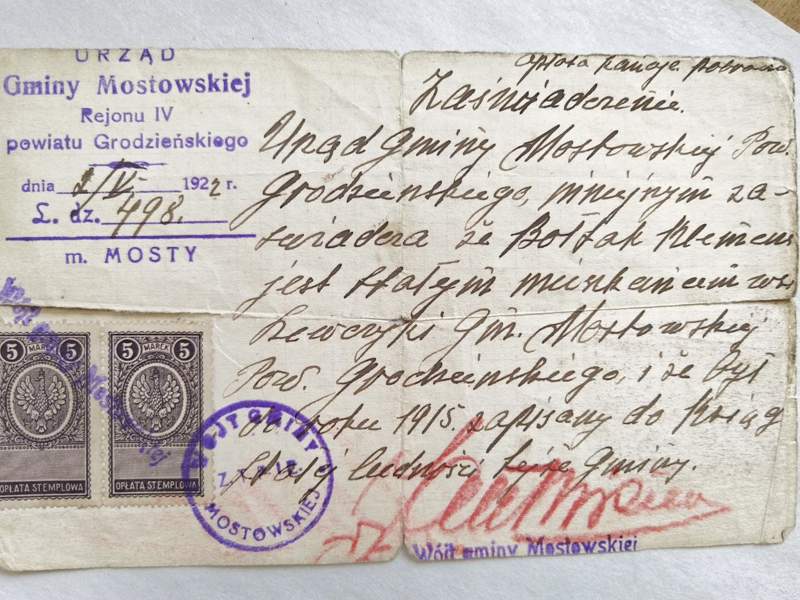 URZĄD
Gminy Mostowskiej
Rejonu IV
powiatu Grodzieńskiego
dnia 2/VI 1922 r.
L. dz. 498.
m. MOSTY
opłata kancel. pobrano
Zaświadczenie.
Urząd Gminy Mostowskiej Pow.
Grodzieńskiego, niniejszym za-
świadcza że Bołtak Klemens
jest stałym mieszkańcem wsi
Lewczyki Gm. Mostowskiej
Pow. Grodzieńskiego, i że był
do roku 1915. zapisany do Ksiąg
stałej ludności tejże Gminy.
5 MAREK 5
OPŁATA STEMPLOWA
5 MAREK 5
OPŁATA STEMPLOWA
Wójt gminy Mostowskiej
WÓJT GMINY
MOSTOWSKIEJ
Wójt gminy Mostowskiej